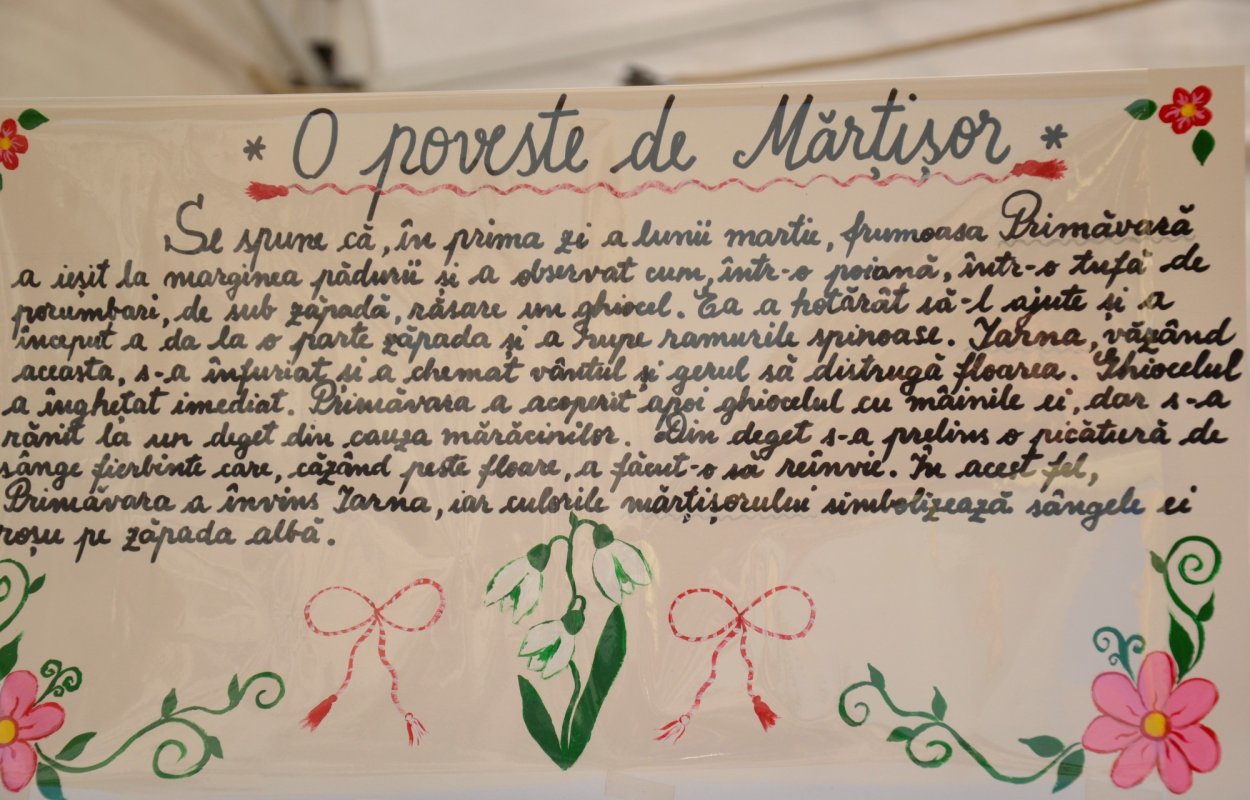 * O poveste de Mărțișor *
Se spune că, în prima zi a lunii martie, frumoasa Primăvară
a ieșit la marginea pădurii și a observat cum, într-o poiană, într-o tufă de
porumbari, de sub zăpadă, răsare un ghiocel. Ea a hotărât să-l ajute și a
început a da la o parte zăpada și a rupe ramurile spinoase. Iarna, văzând
aceasta, s-a înfuriat și a chemat vântul și gerul să distrugă floarea. Ghiocelul
a înghețat imediat. Primăvara a acoperit apoi ghiocelul cu mâinile ei, dar s-a
rănit la un deget din cauza mărăcinilor. Din deget s-a prelins o picătură de
sânge fierbinte care, căzând peste floare, a făcut-o să reînvie. În acest fel,
Primăvara a învins Iarna, iar culorile mărțișorului simbolizează sângele ei
roșu pe zăpada albă.